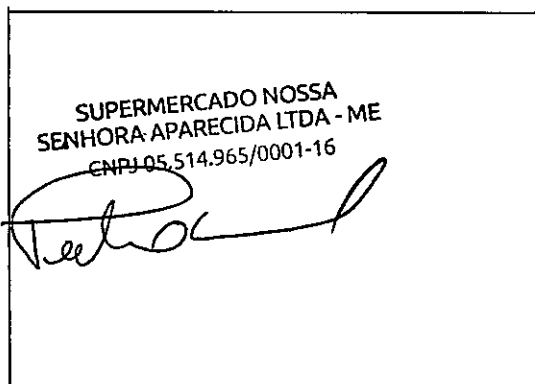 SUPERMERCADO NOSSA
SENHORA APARECIDA LTDA - ME
CNPJ 05.514.965/0001-16